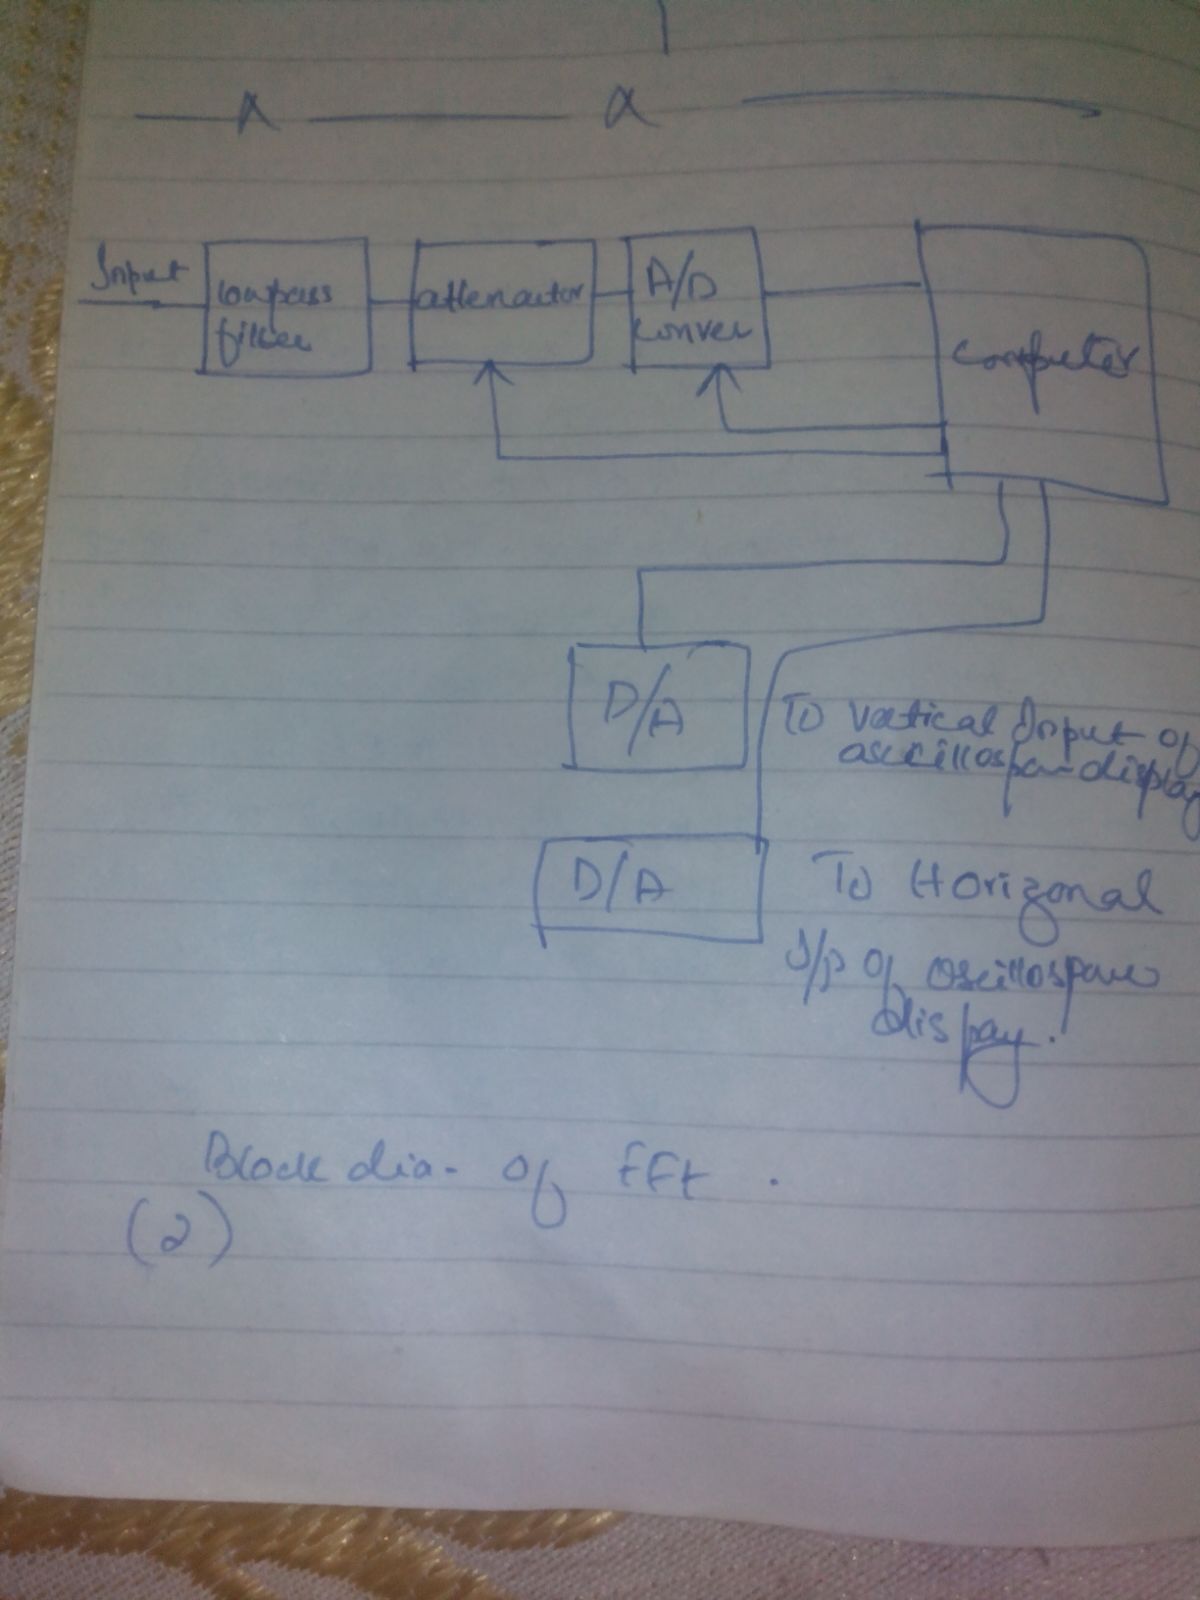 Input
lowpass
filter
attenautor
A/D
conver
computer
D/A
To vertical Input of
display
D/A
To Horizonal
I/p of
dispay.
Block dia. of fft .
(2)